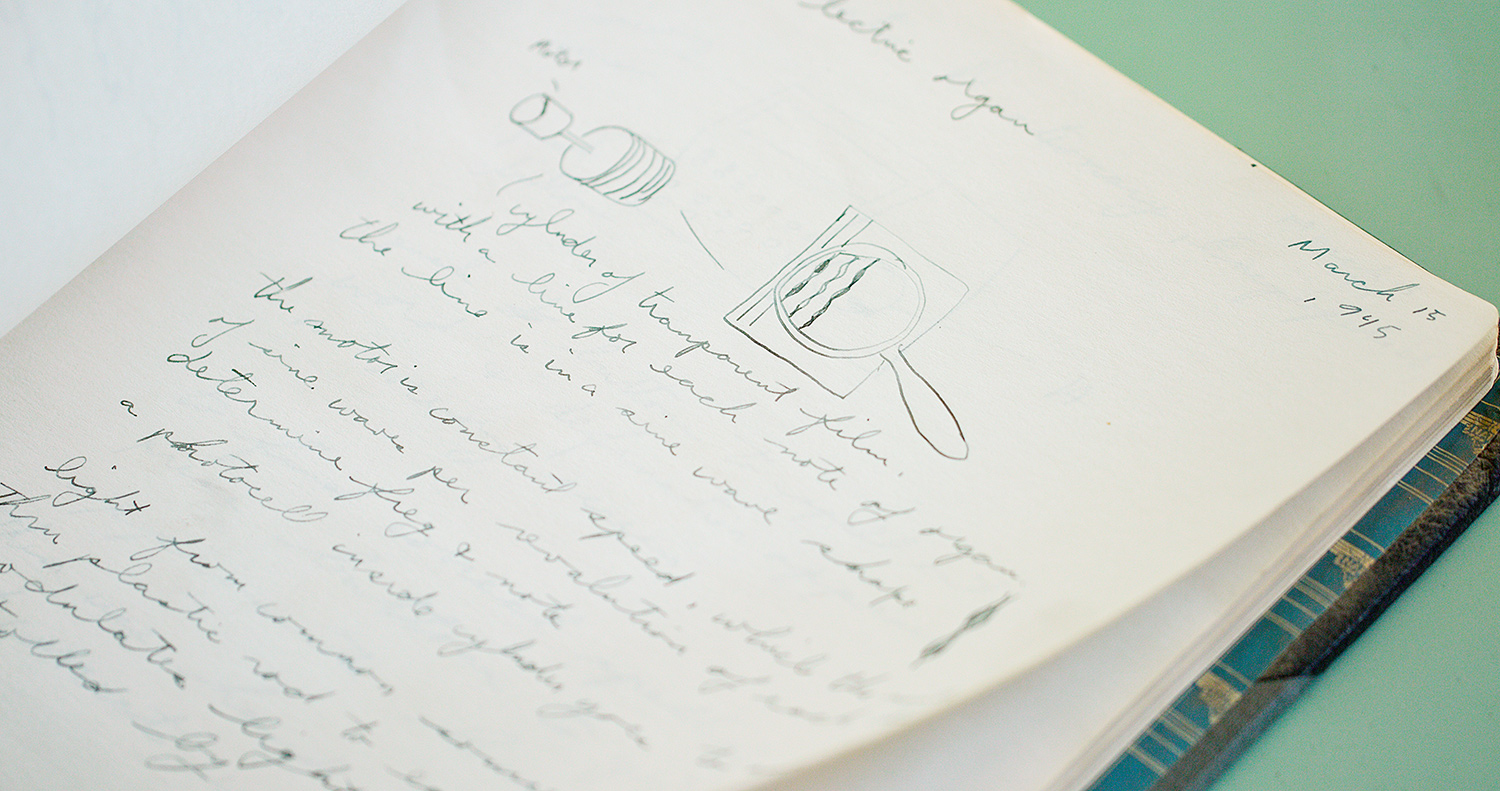 lectric organ
Motor
March 15
, 1945
Cylinder of tranparent film,
with a line for each note of organ
the line is in a sine wave shape
the motor is constant speed, which the
of sine waves per revolution of each
determine freq & note
a photocell inside cylinder goes to
light from common
Thru plastic rod to
odulates light
olled by